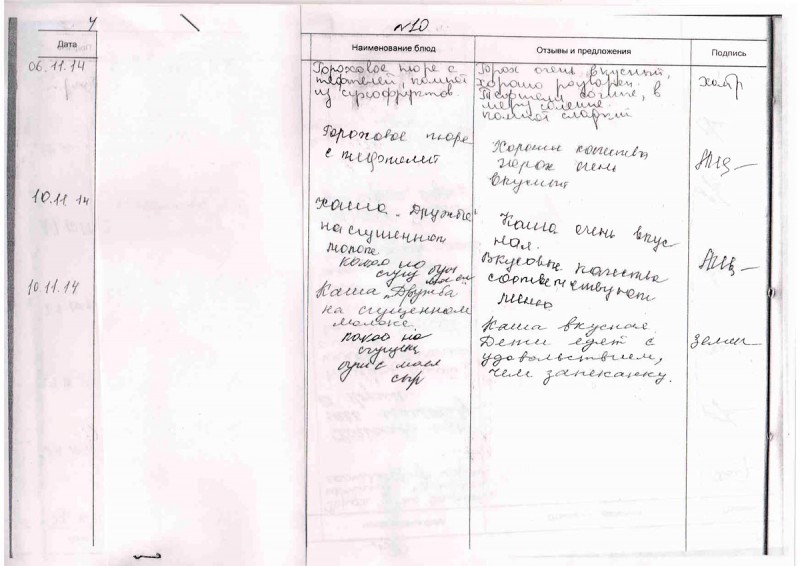 4
№10
Дата
Наименование блюд
Отзывы и предложения
Подпись
06.11.14
Гороховое пюре с
тефтелей, компот
из сухофруктов.
Горох очень вкусный,
хорошо разварен.
в
меру соленые.
компот сладкий
Гороховое пюре
с тефтелей
Хорошие качества
горох очень
вкусный
10.11.14
Каша "Дружба"
на сгущенном
молоке
какао на
сгущ
Каша очень вкус
ная.
Вкусовые качества
соответствуют
меню
10.11.14
Каша "Дружба
на сгущенном
молоке.
какао на
сгущенке
бутер с масл
сыр
Каша вкусная.
Дети едят с
удовольствием,
чем запеканку.